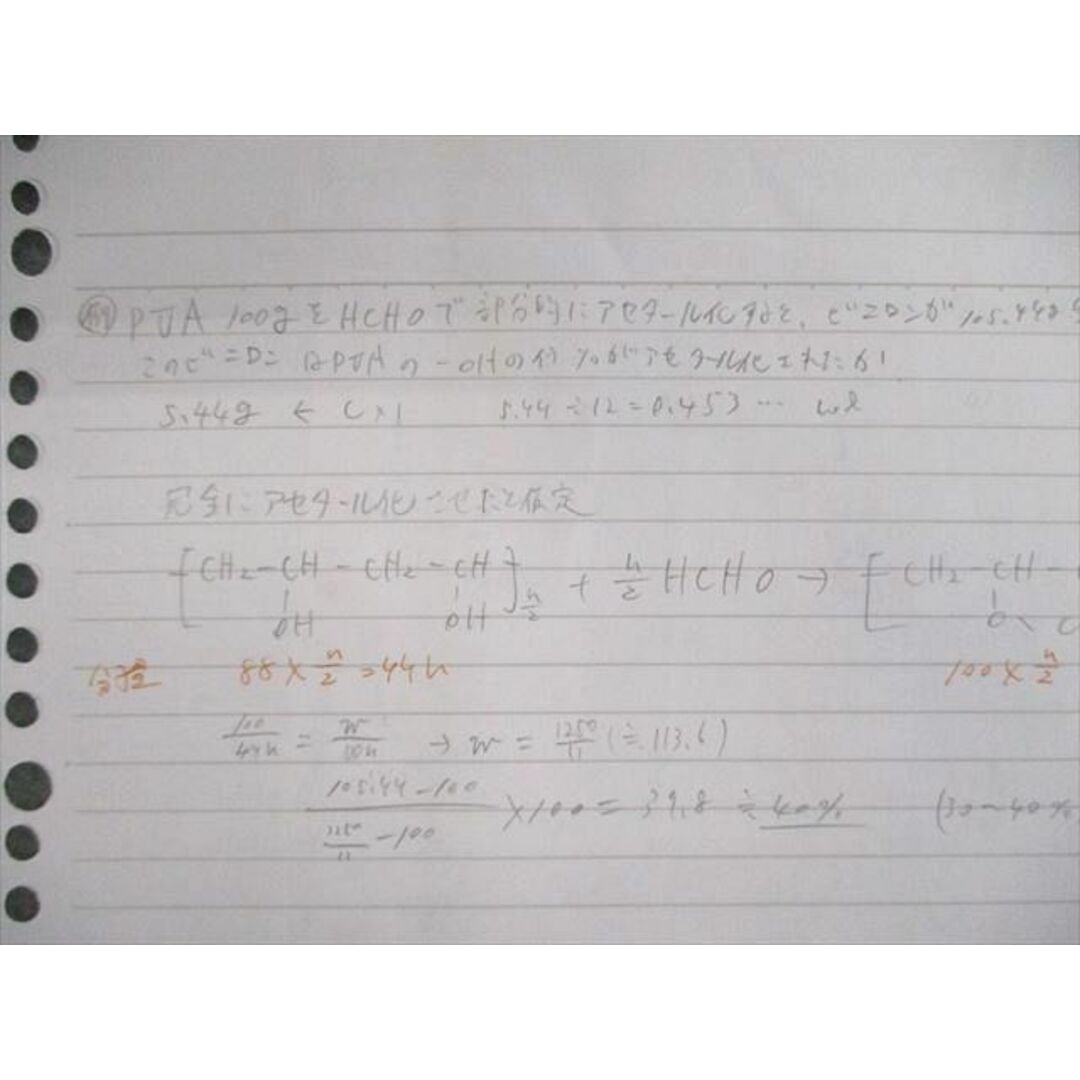 例 PVA 100gをHCHOで部分的にアセタール化すると、ビニロンが105.44g
このビニロンはPVAの-OHの何%がアセタール化されたか!
5.44g ← C×1 5.44÷12=0.453… mol
完全にアセタール化させたと仮定
[CH2-CH-CH2-CH]n/2 + n/2 HCHO → [CH2-CH-
OH OH O
分子量 88×n/2=44n 100×n/2
100/44n = w/50n → w = 1250/11 (≒113.6)
105.44-100 / 1250/11 -100 ×100 = 39.8 ≒ 40% (30~40%